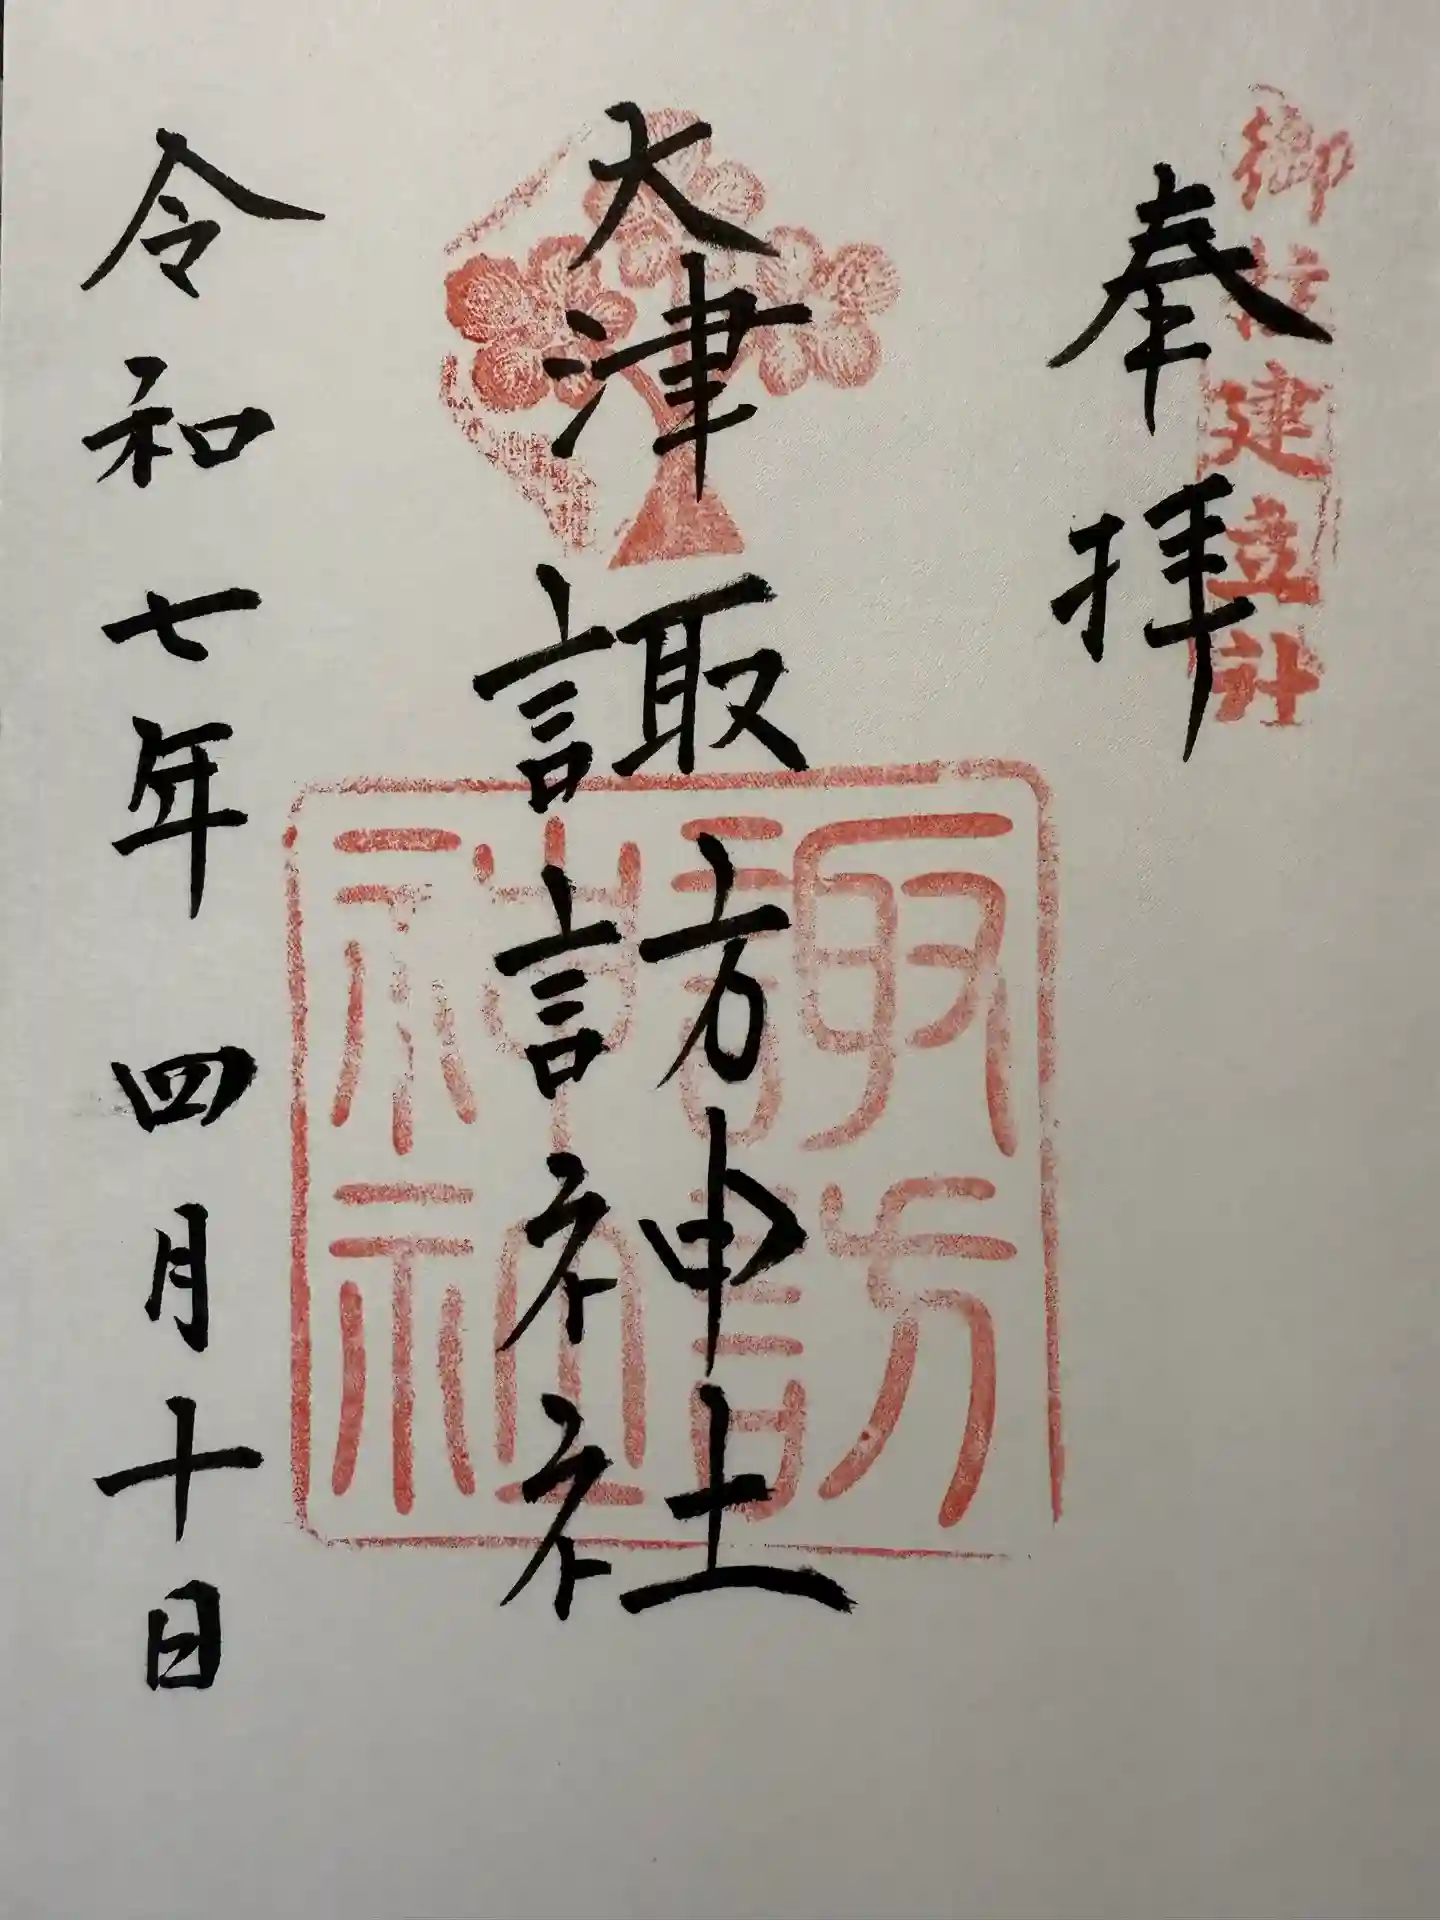 御柱建立社
奉拝
大津諏訪神社
諏訪神社
令和七年 四月十日